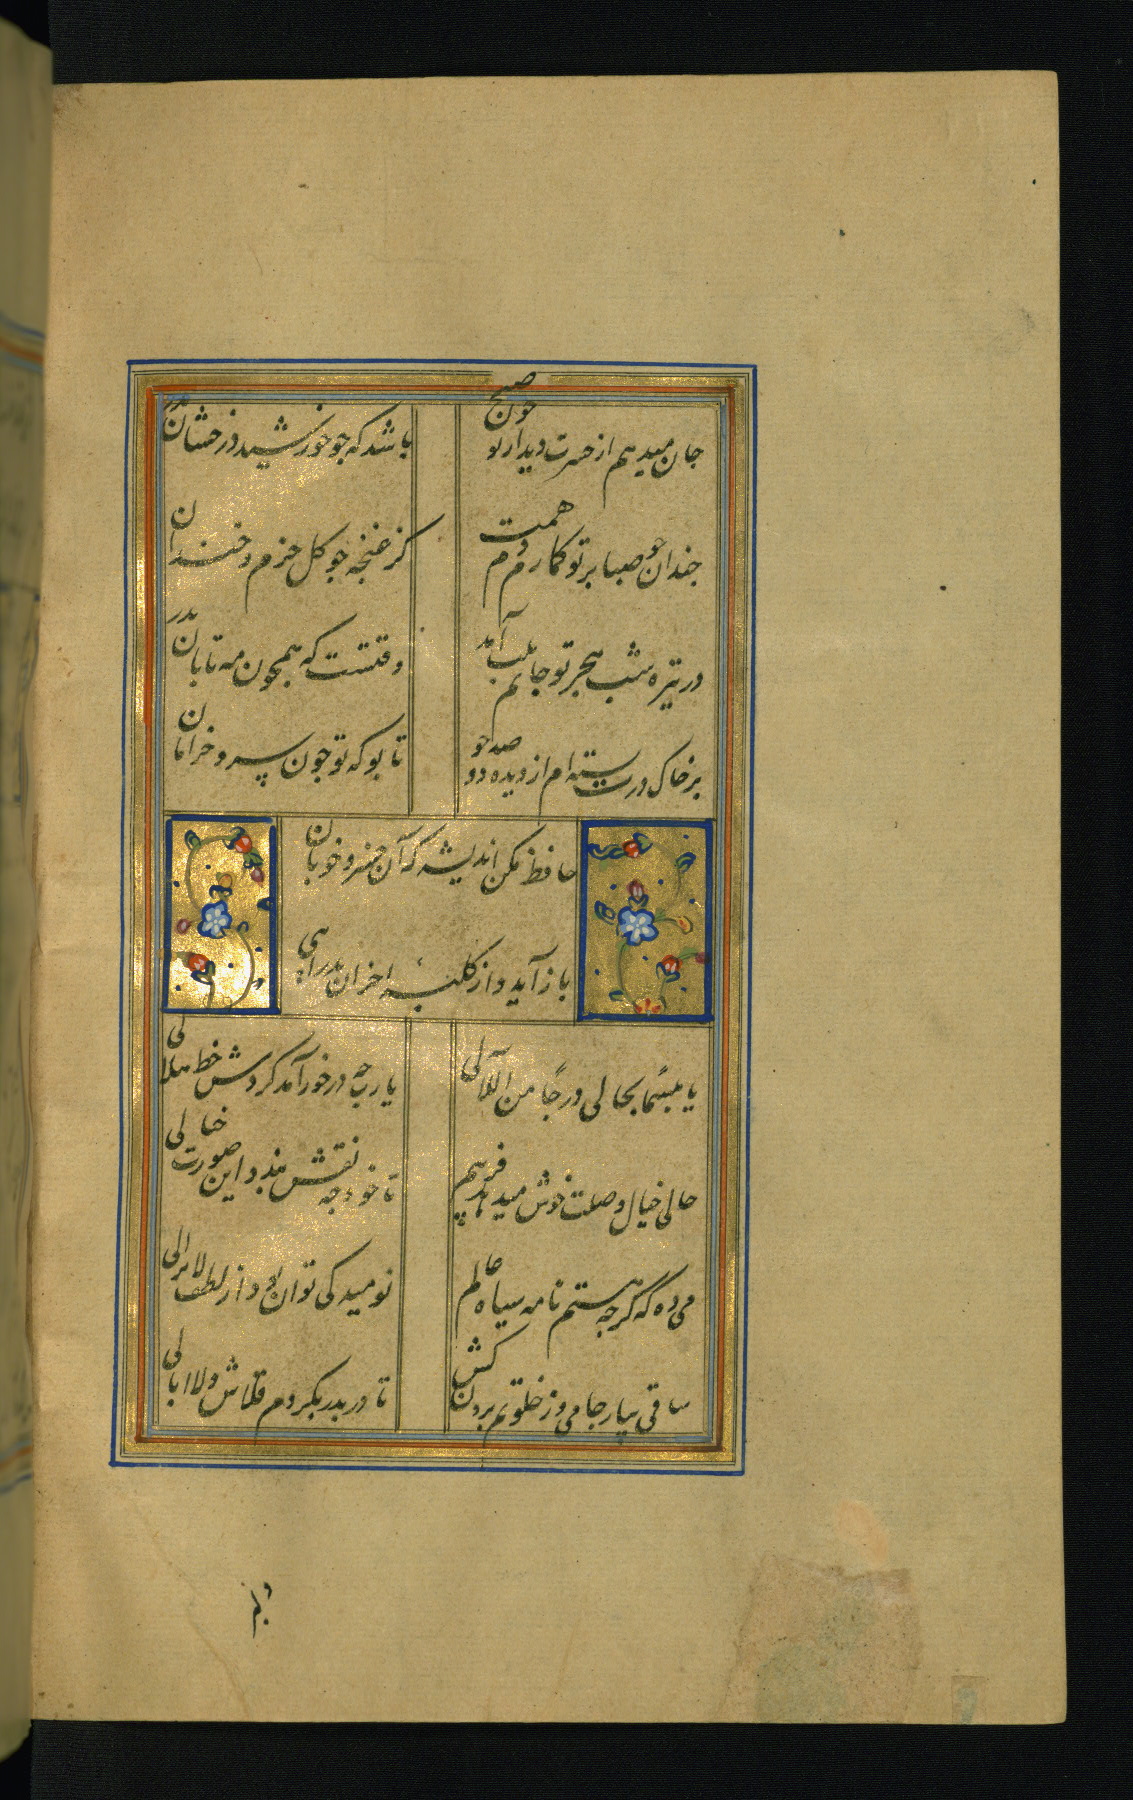 جان میدهم از حسرت دیدار تو چون صبح
باشد که چو خورشید درخشان بدر
چندان چو صبا بر تو کمارم دم همت
کز غنچه چو کل خرم و خندان
در تیره شب هجر تو جانم بلب آمد
وقتست که همچون مه تابان بدر
بر خاک درت بسته ام از دیده دو صد جو
تا بو که تو چون سرو خرامان
حافظ مکن اندیشه که آن خسرو خوبان
باز آید و از کلبه احزان بدر آیی
یا مبسما یحاکی درجا من اللآلی
یا رب چه در خور آمد کردش خط هلالی
حالی خیال وصلت خوش میدهد فریبم
تا خود چه نقش بندد این صورت خیالی
می ده که گرچه هستم نامه سیاه عالم
نومید کی توان بود از لطف لایزالی
ساقی بیار جامی وز خلوتم برون کش
تا در بدر بگردم قلاش و لاابالی